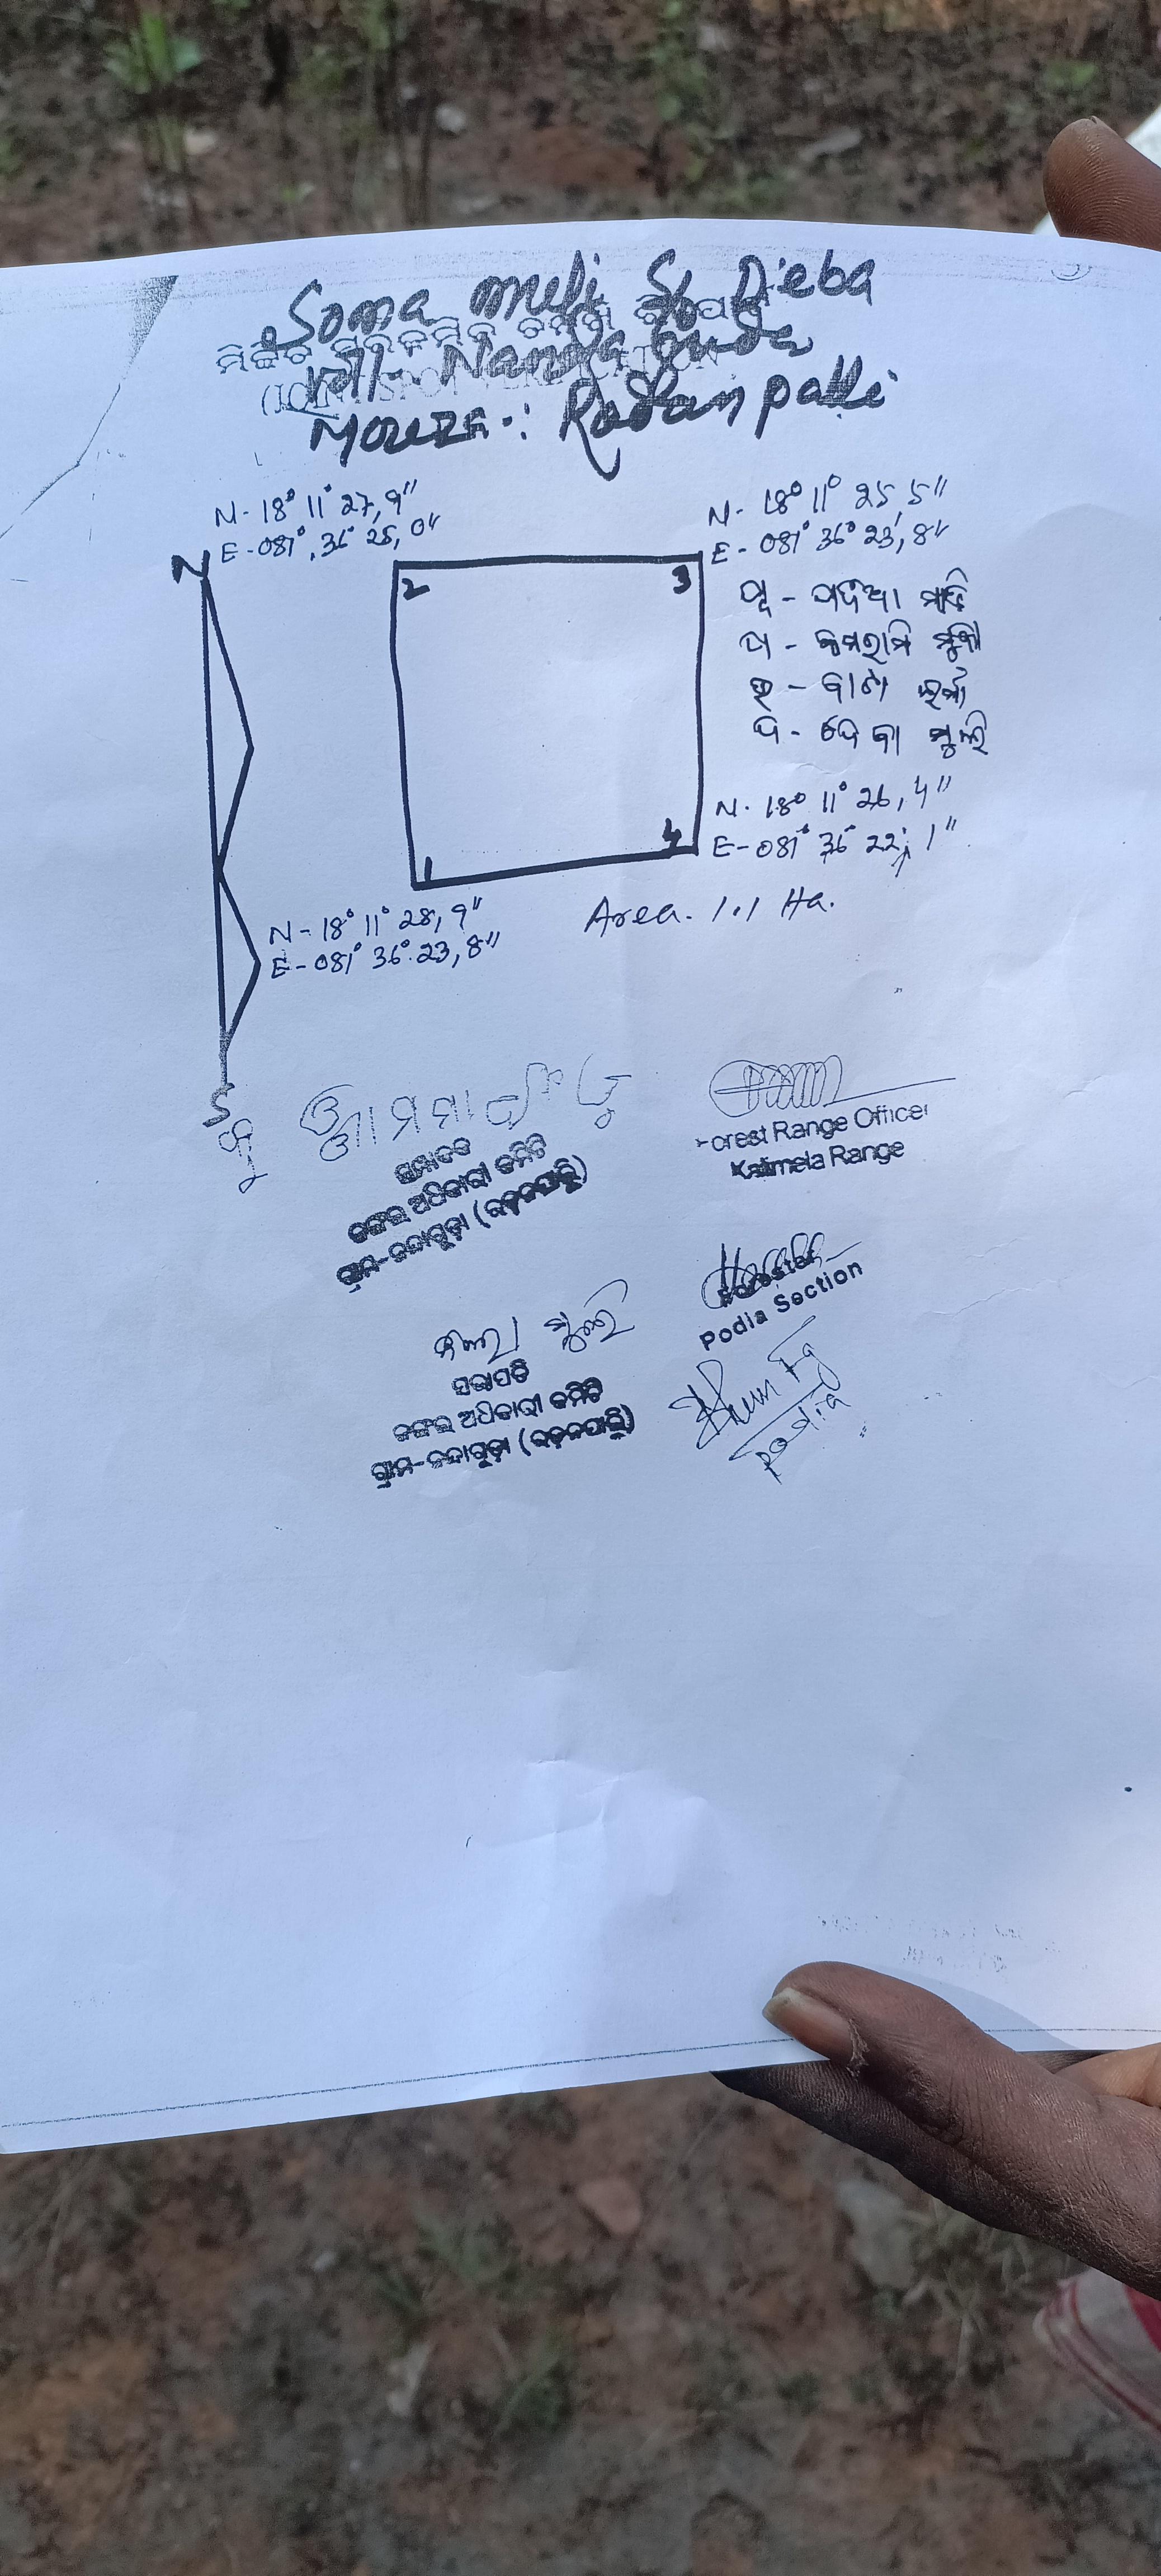 Soma meli S/o Dieba
ମିଳିତ ସରଜମିନ ତଦନ୍ତ
vill- Nanda Guda
Mouza.: Radlanpalli
N- 18° 11° 27,9"
E-081°, 36° 25, 0"
N- 18° 11° 25,5"
E- 081° 36° 23', 8"
N
2
3
ପୂ - ପଦିଆ ମାଡ଼ି
ପ - କମରାମି ମୁକା
ଉ - ବାଟା
ଦ - ଦେବା ମୁଲି
N- 18° 11° 26,4"
E-081° 36° 22, 1"
4
1
N-18° 11° 28,9"
E-081° 36° 23,8"
Area. 1.1 Ha.
S
ସମ୍ପାଦକ
ଜଙ୍ଗଲ ଅଧିକାରୀ କମିଟି
ଗ୍ରାମ-ନନ୍ଦାଗୁଡ଼ା (ରଡ଼ଲପାଲ୍ଲି)
Forest Range Officer
Kalimela Range
Forester
Podia Section
ମୁଲି
ସଭାପତି
ଜଙ୍ଗଲ ଅଧିକାରୀ କମିଟି
ଗ୍ରାମ-ନନ୍ଦାଗୁଡ଼ା (ରଡ଼ଲପାଲ୍ଲି)
podia